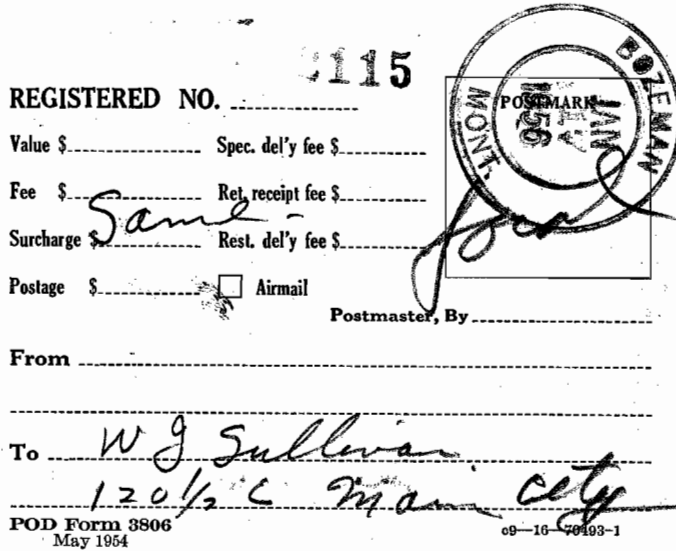 3115
REGISTERED NO.
POSTMARK
BOZEMAN MONT.
JAN
1956
Value $ Spec. del'y fee $
Fee $ Ret. receipt fee $
Same -
Surcharge $ Rest. del'y fee $
Postage $ Airmail
Postmaster, By
From
To W J Sullivan
120 1/2 E Main City
POD Form 3806
May 1954
c9—16—70493-1